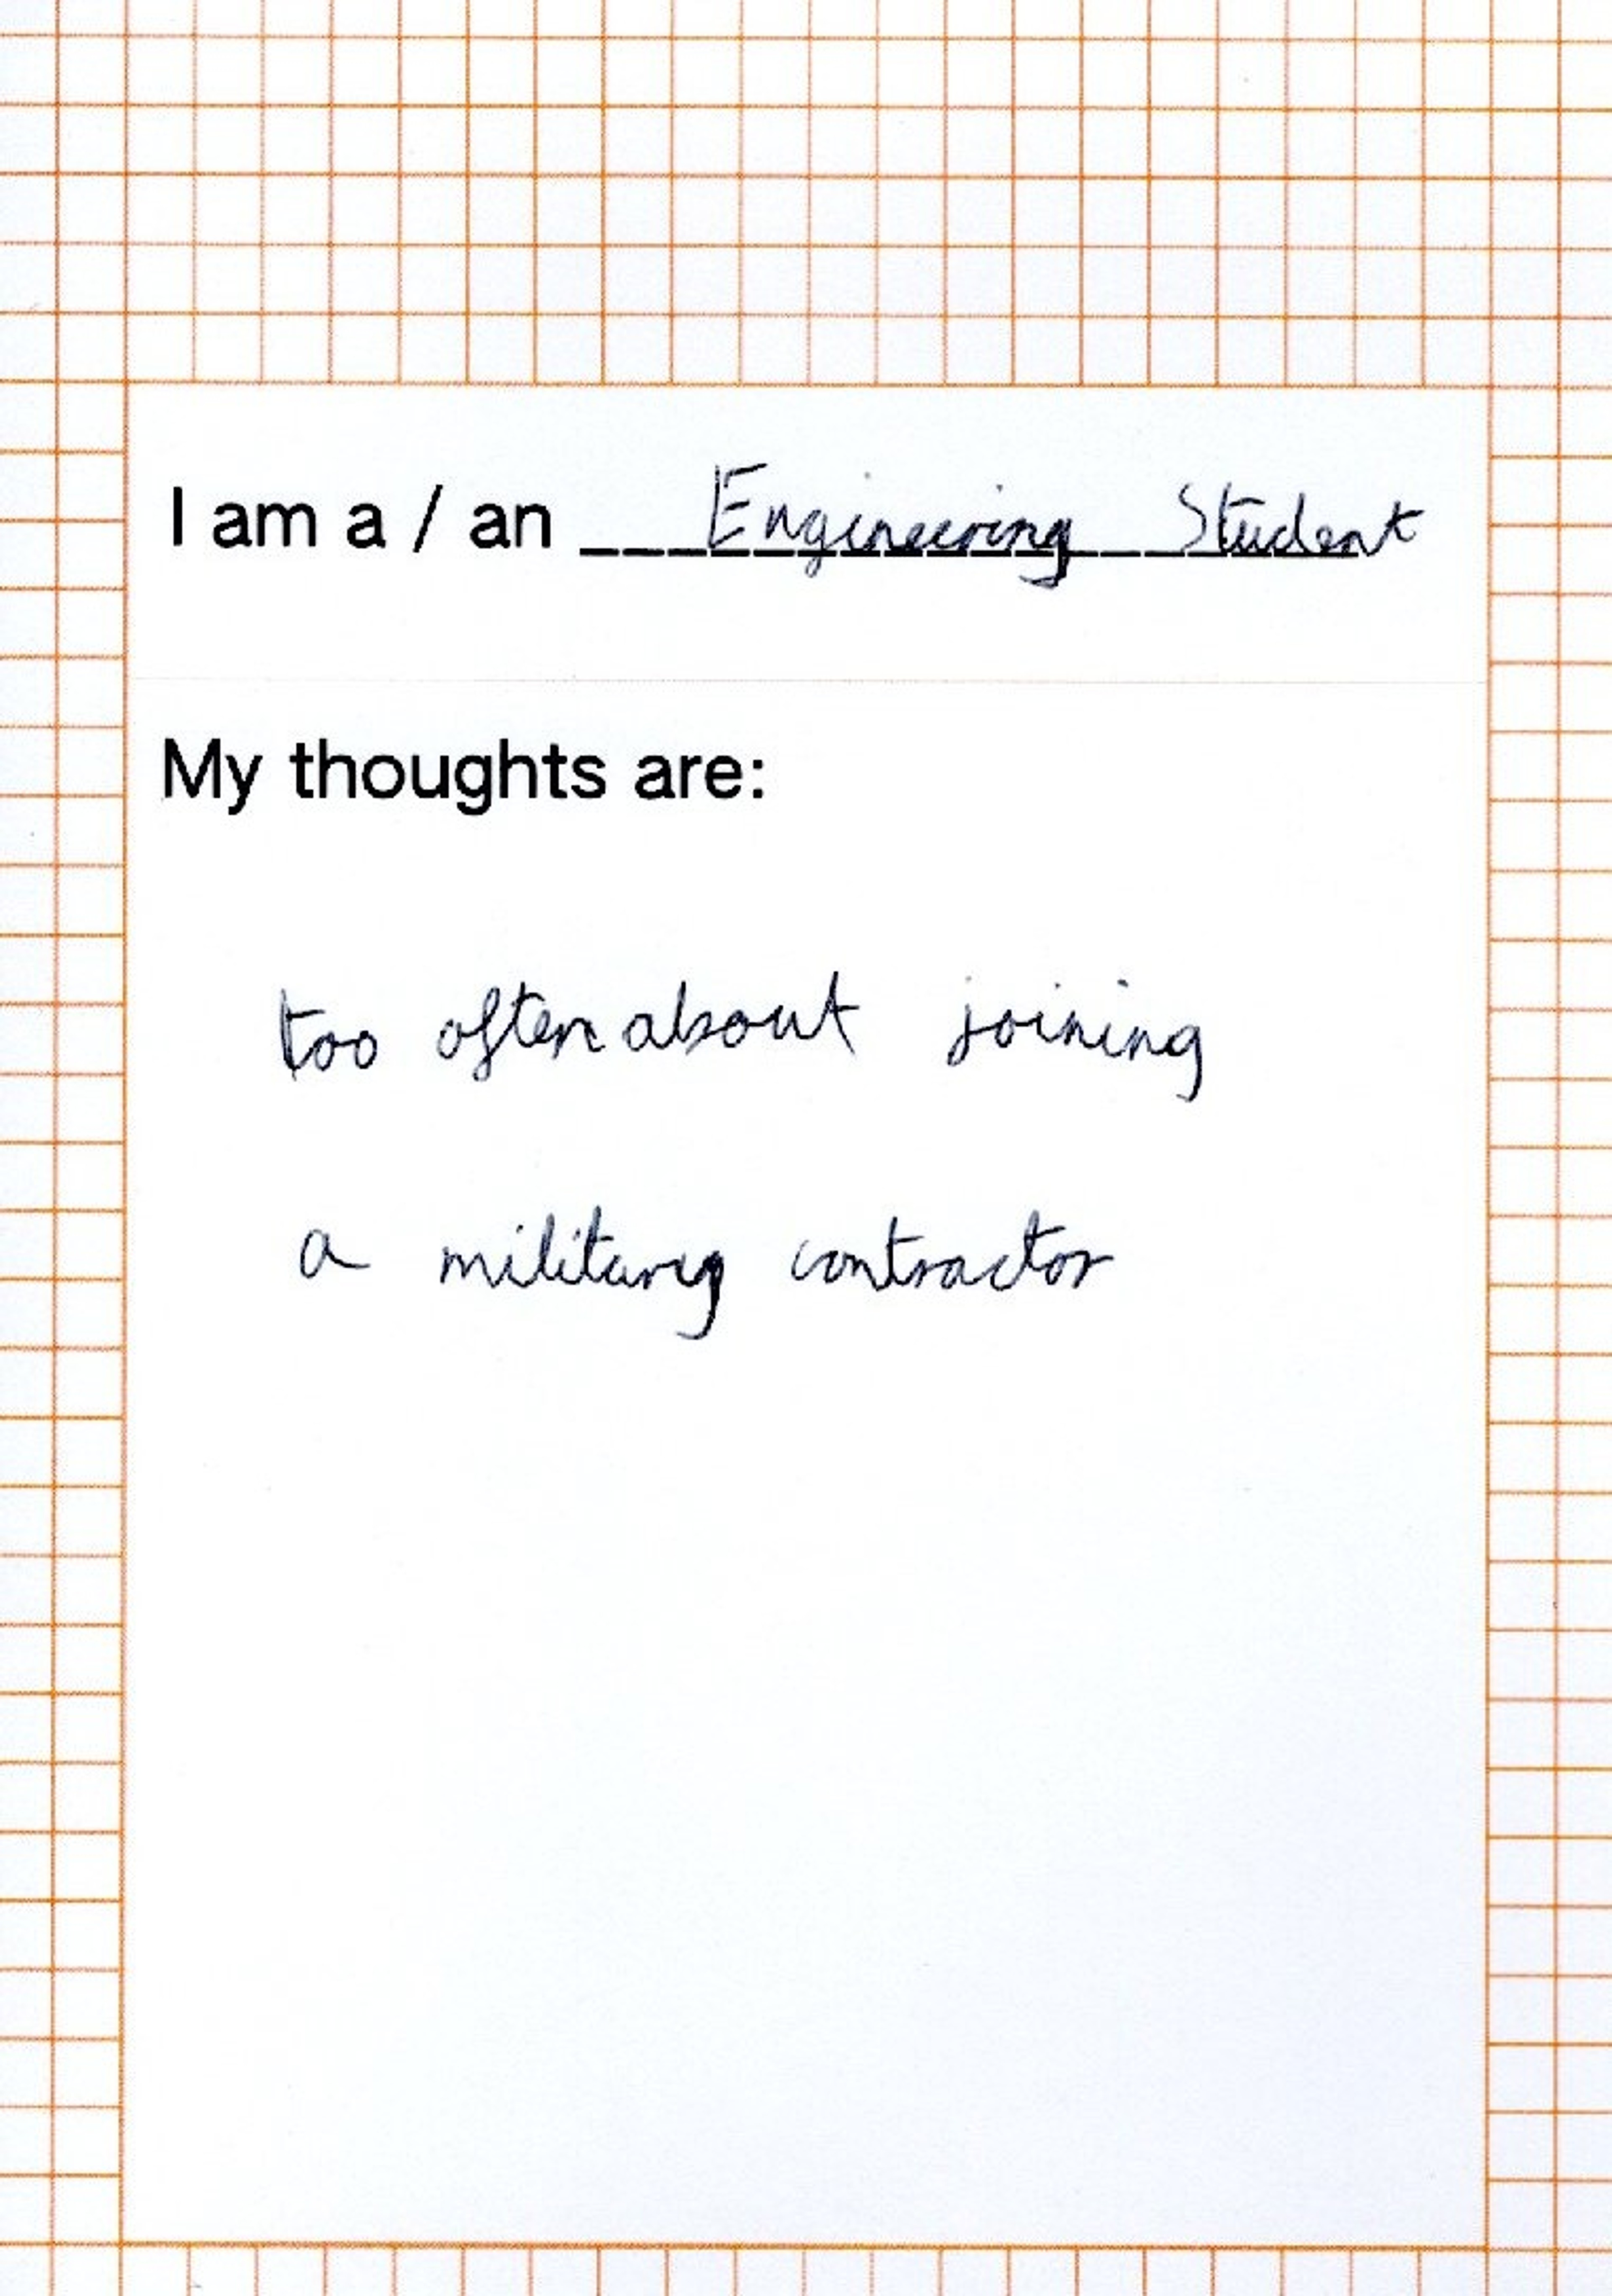 I am a / an ___Engineering Student
My thoughts are:
too often about joining
a military contractor